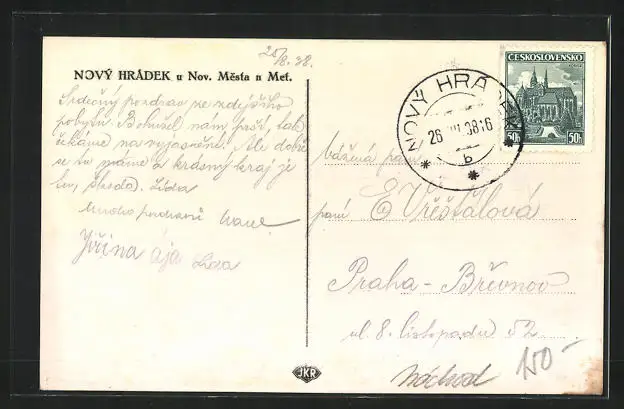 25/8.38.
NOVÝ HRÁDEK u Nov. Města n Met.
Srdečný pozdrav ze zdejšího
pobytu. Bohužel nám prší, tak
čekáme na vyjasnění. Ale dobře
se tu máme a krásný kraj je
škoda). Lída
Mnoho pozdravů
Jiřina Lída
ČESKOSLOVENSKO
50h 50h
NOVÝ HRÁDEK
26 38 16
b
Vážená paní
paní E. Vřešťálová
Praha - Břevnov
ul 8. listopadu 52
Náchod
150-
JKR